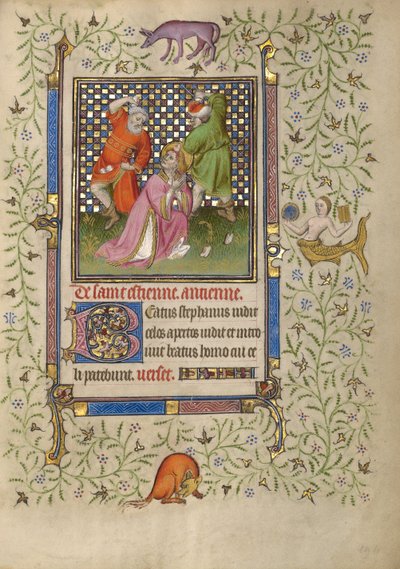 De saint estienne. antienne.
Beatus stephanus uidit
celos apertos uidit et intro
iuit beatus homo cui ce
li patebunt. uerset.